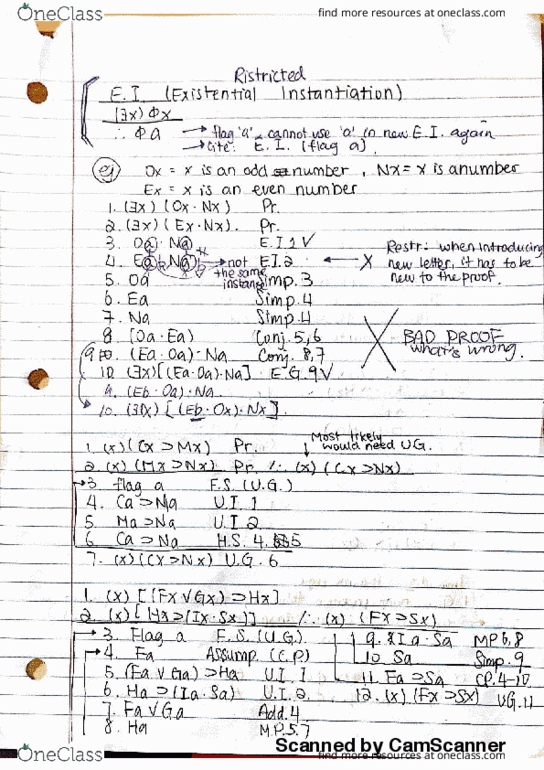 OneClass
find more resources at oneclass.com
Ristricted
E.I (Existential Instantiation)
(∃x) Φx
∴ Φa → flag 'a', cannot use 'a' in new E.I. again
→ Cite: E.I. (flag a)
eg Ox = x is an odd number, Nx = x is anumber
Ex = x is an even number
1. (∃x) (Ox · Nx) Pr.
2. (∃x) (Ex · Nx). Pr.
3. Oa · Na E.I 1 √
4. Ea · Na → not the same instance E.I.2 ← X Restr: when introducing new letter, it has to be new to the proof.
5. Oa Simp. 3
6. Ea Simp. 4
7. Na Simp. 4
8. (Oa · Ea) Conj. 5,6 BAD PROOF
9. (Ea · Oa) · Na Conj. 8,7 what's wrong.
10. (∃x)[(Ea · Oa) · Na] E.G. 9 √
9. (Eb · Oa) · Na
10. (∃x) [(Eb · Ox) · Nx].
1. (x) (Cx ⊃ Mx) Pr. ↓ Most likely would need UG.
2. (x) (Mx ⊃ Nx) Pr. /∴ (x) (Cx ⊃ Nx)
3. flag a F.S. (U.G.)
4. Ca ⊃ Na U.I. 1
5. Ma ⊃ Na U.I 2
6. Ca ⊃ Na H.S. 4. 5
7. (x) (Cx ⊃ Nx) U.G. 6
1. (x) [(Fx ∨ Gx) ⊃ Hx]
2. (x) [Hx ⊃ (Ix · Sx)] /∴ (x) (Fx ⊃ Sx)
3. Flag a F.S. (U.G.) 9. Ia · Sa MP 6,8
4. Fa Assump. (C.P) 10 Sa Simp. 9
5. (Fa ∨ Ga) ⊃ Ha U.I. 1 11. Fa ⊃ Sa CP. 4-10
6. Ha ⊃ (Ia · Sa) U.I. 2 12. (x) (Fx ⊃ Sx) UG. 11
7. Fa ∨ Ga Add. 4
8. Ha M.P. 5,7
Scanned by CamScanner
OneClass
find more resources at oneclass.com